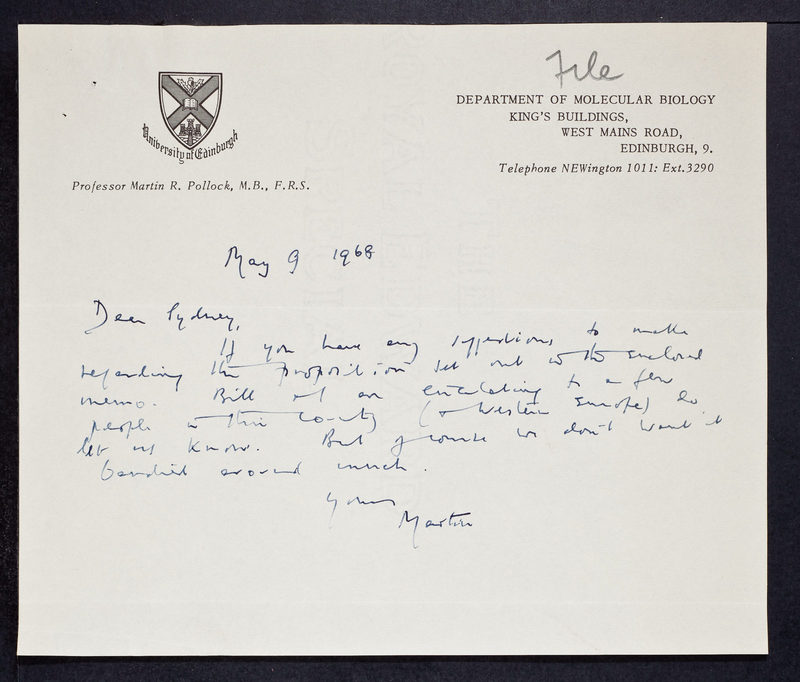 File
DEPARTMENT OF MOLECULAR BIOLOGY
KING'S BUILDINGS,
WEST MAINS ROAD,
EDINBURGH, 9.
Telephone NEWington 1011: Ext.3290
University of Edinburgh
Professor Martin R. Pollock, M.B., F.R.S.
May 9 1968
Dear Sydney,
If you have any suggestions to make
regarding the proposition set out in the enclosed
memo. Bill & I are circulating to a few
people in this country (& Western Europe) do
let us know. But of course we don't want it
bandied around much.
Yours
Martin